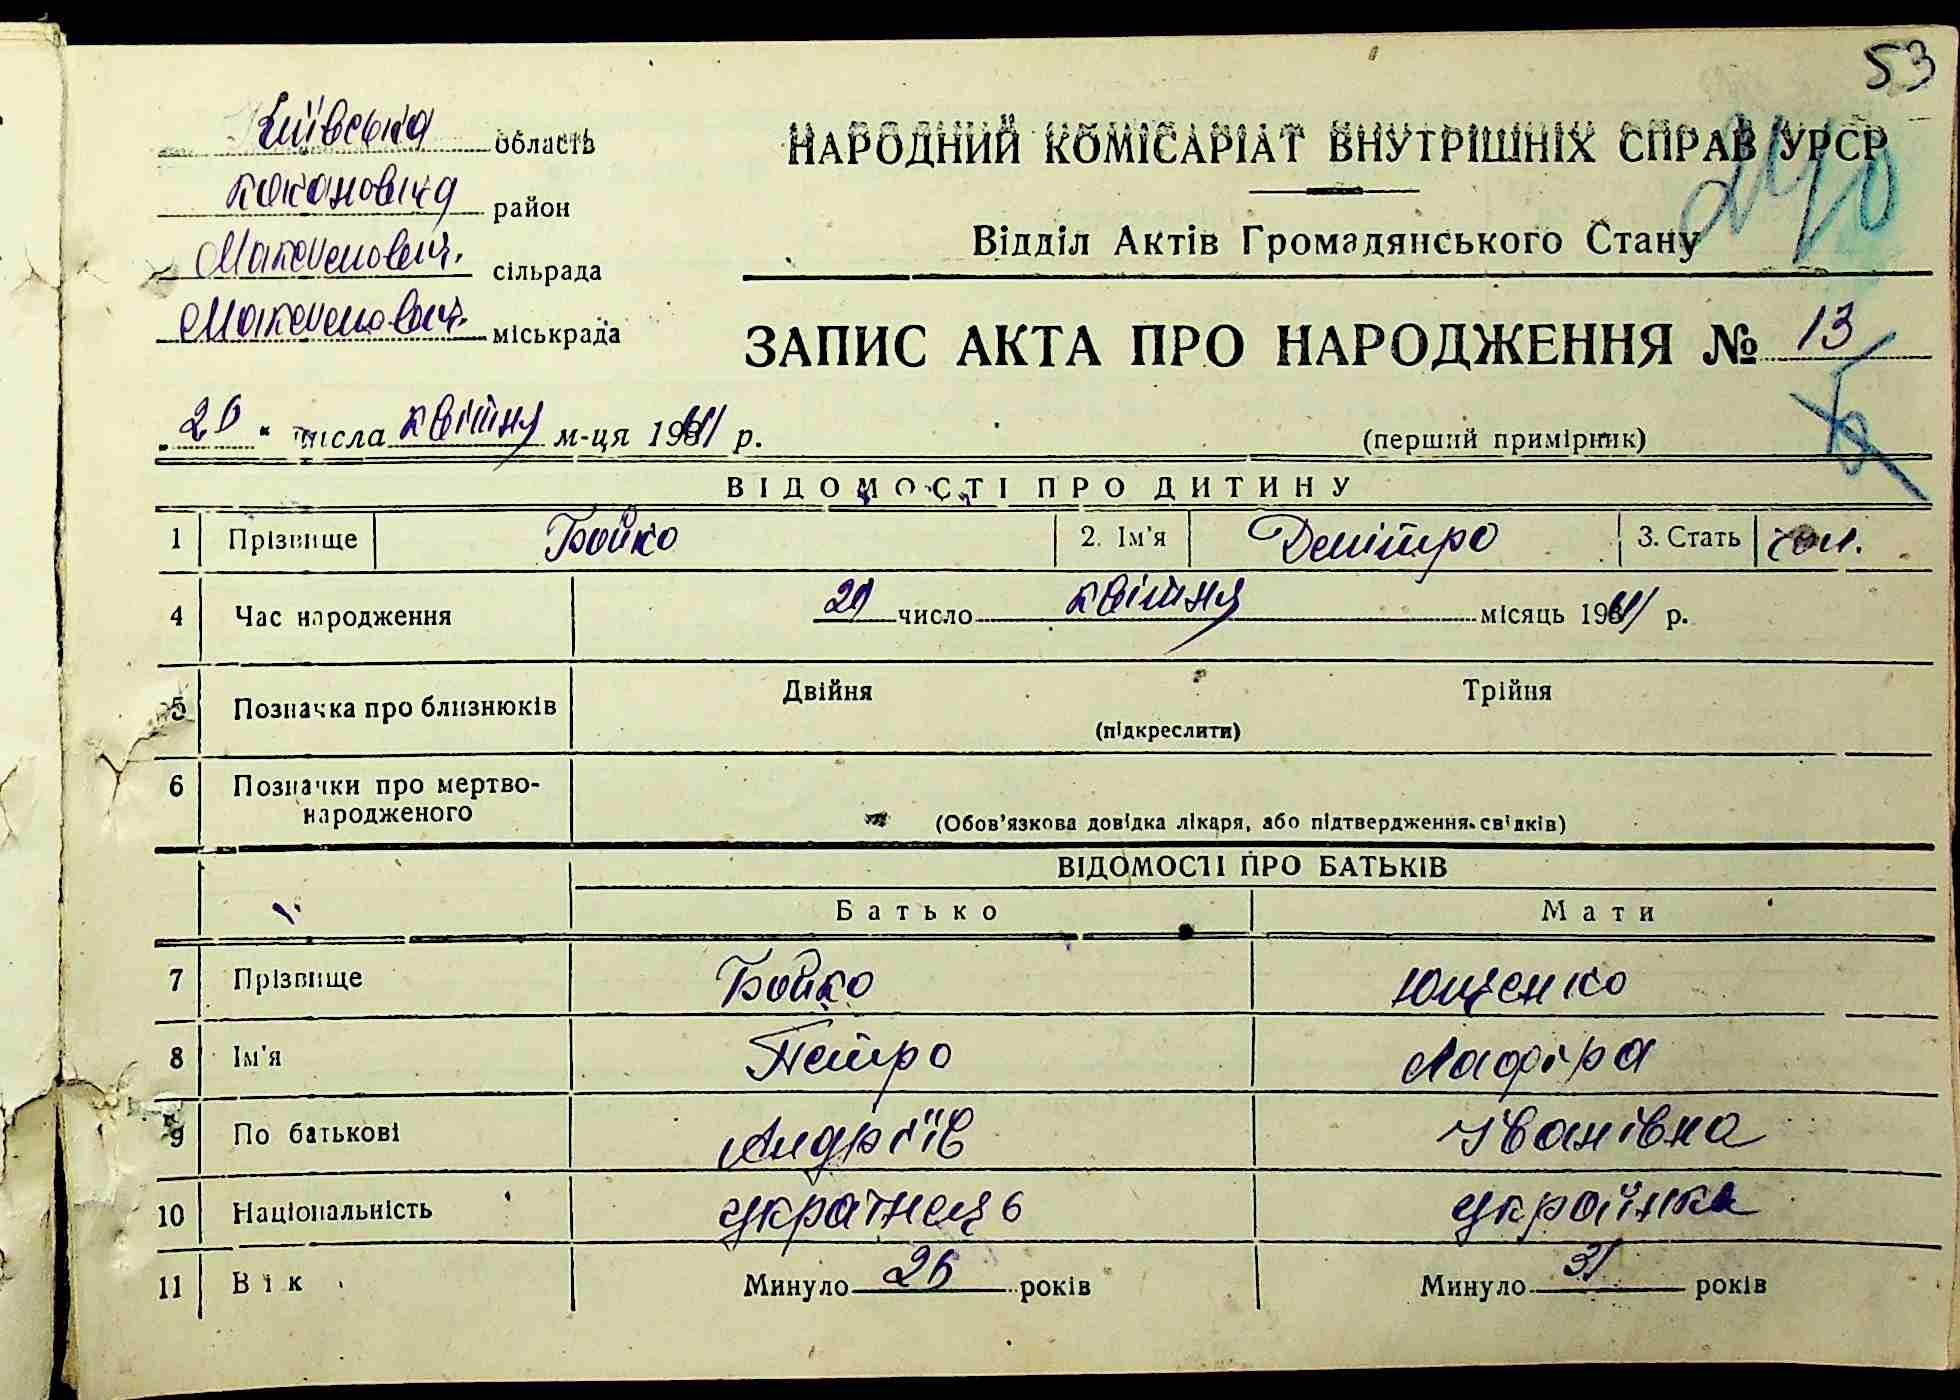 53
Київська область
НАРОДНИЙ КОМІСАРІАТ ВНУТРІШНІХ СПРАВ УРСР
район
240
Відділ Актів Громадянського Стану
Максимович. сільрада
Максимович. міськрада
ЗАПИС АКТА ПРО НАРОДЖЕННЯ № 13
числа квітня м-ця 1941 р.
(перший примірник)
ВІДОМОСТІ ПРО ДИТИНУ
1 Прізвище Бойко 2. Ім'я Дмітро 3. Стать чол.
4 Час народження число квітня місяць 1941 р.
5 Позначка про близнюків Двійня Трійня
(підкреслити)
6 Позначки про мертво-
народженого
(Обов'язкова довідка лікаря, або підтвердження свідків)
ВІДОМОСТІ ПРО БАТЬКІВ
Батько Мати
7 Прізвище Бойко Ющенко
8 Ім'я Петро Лафіра
9 По батькові Андріїв Іванівна
10 Національність українець українка
11 Вік Минуло 26 років Минуло 31 років